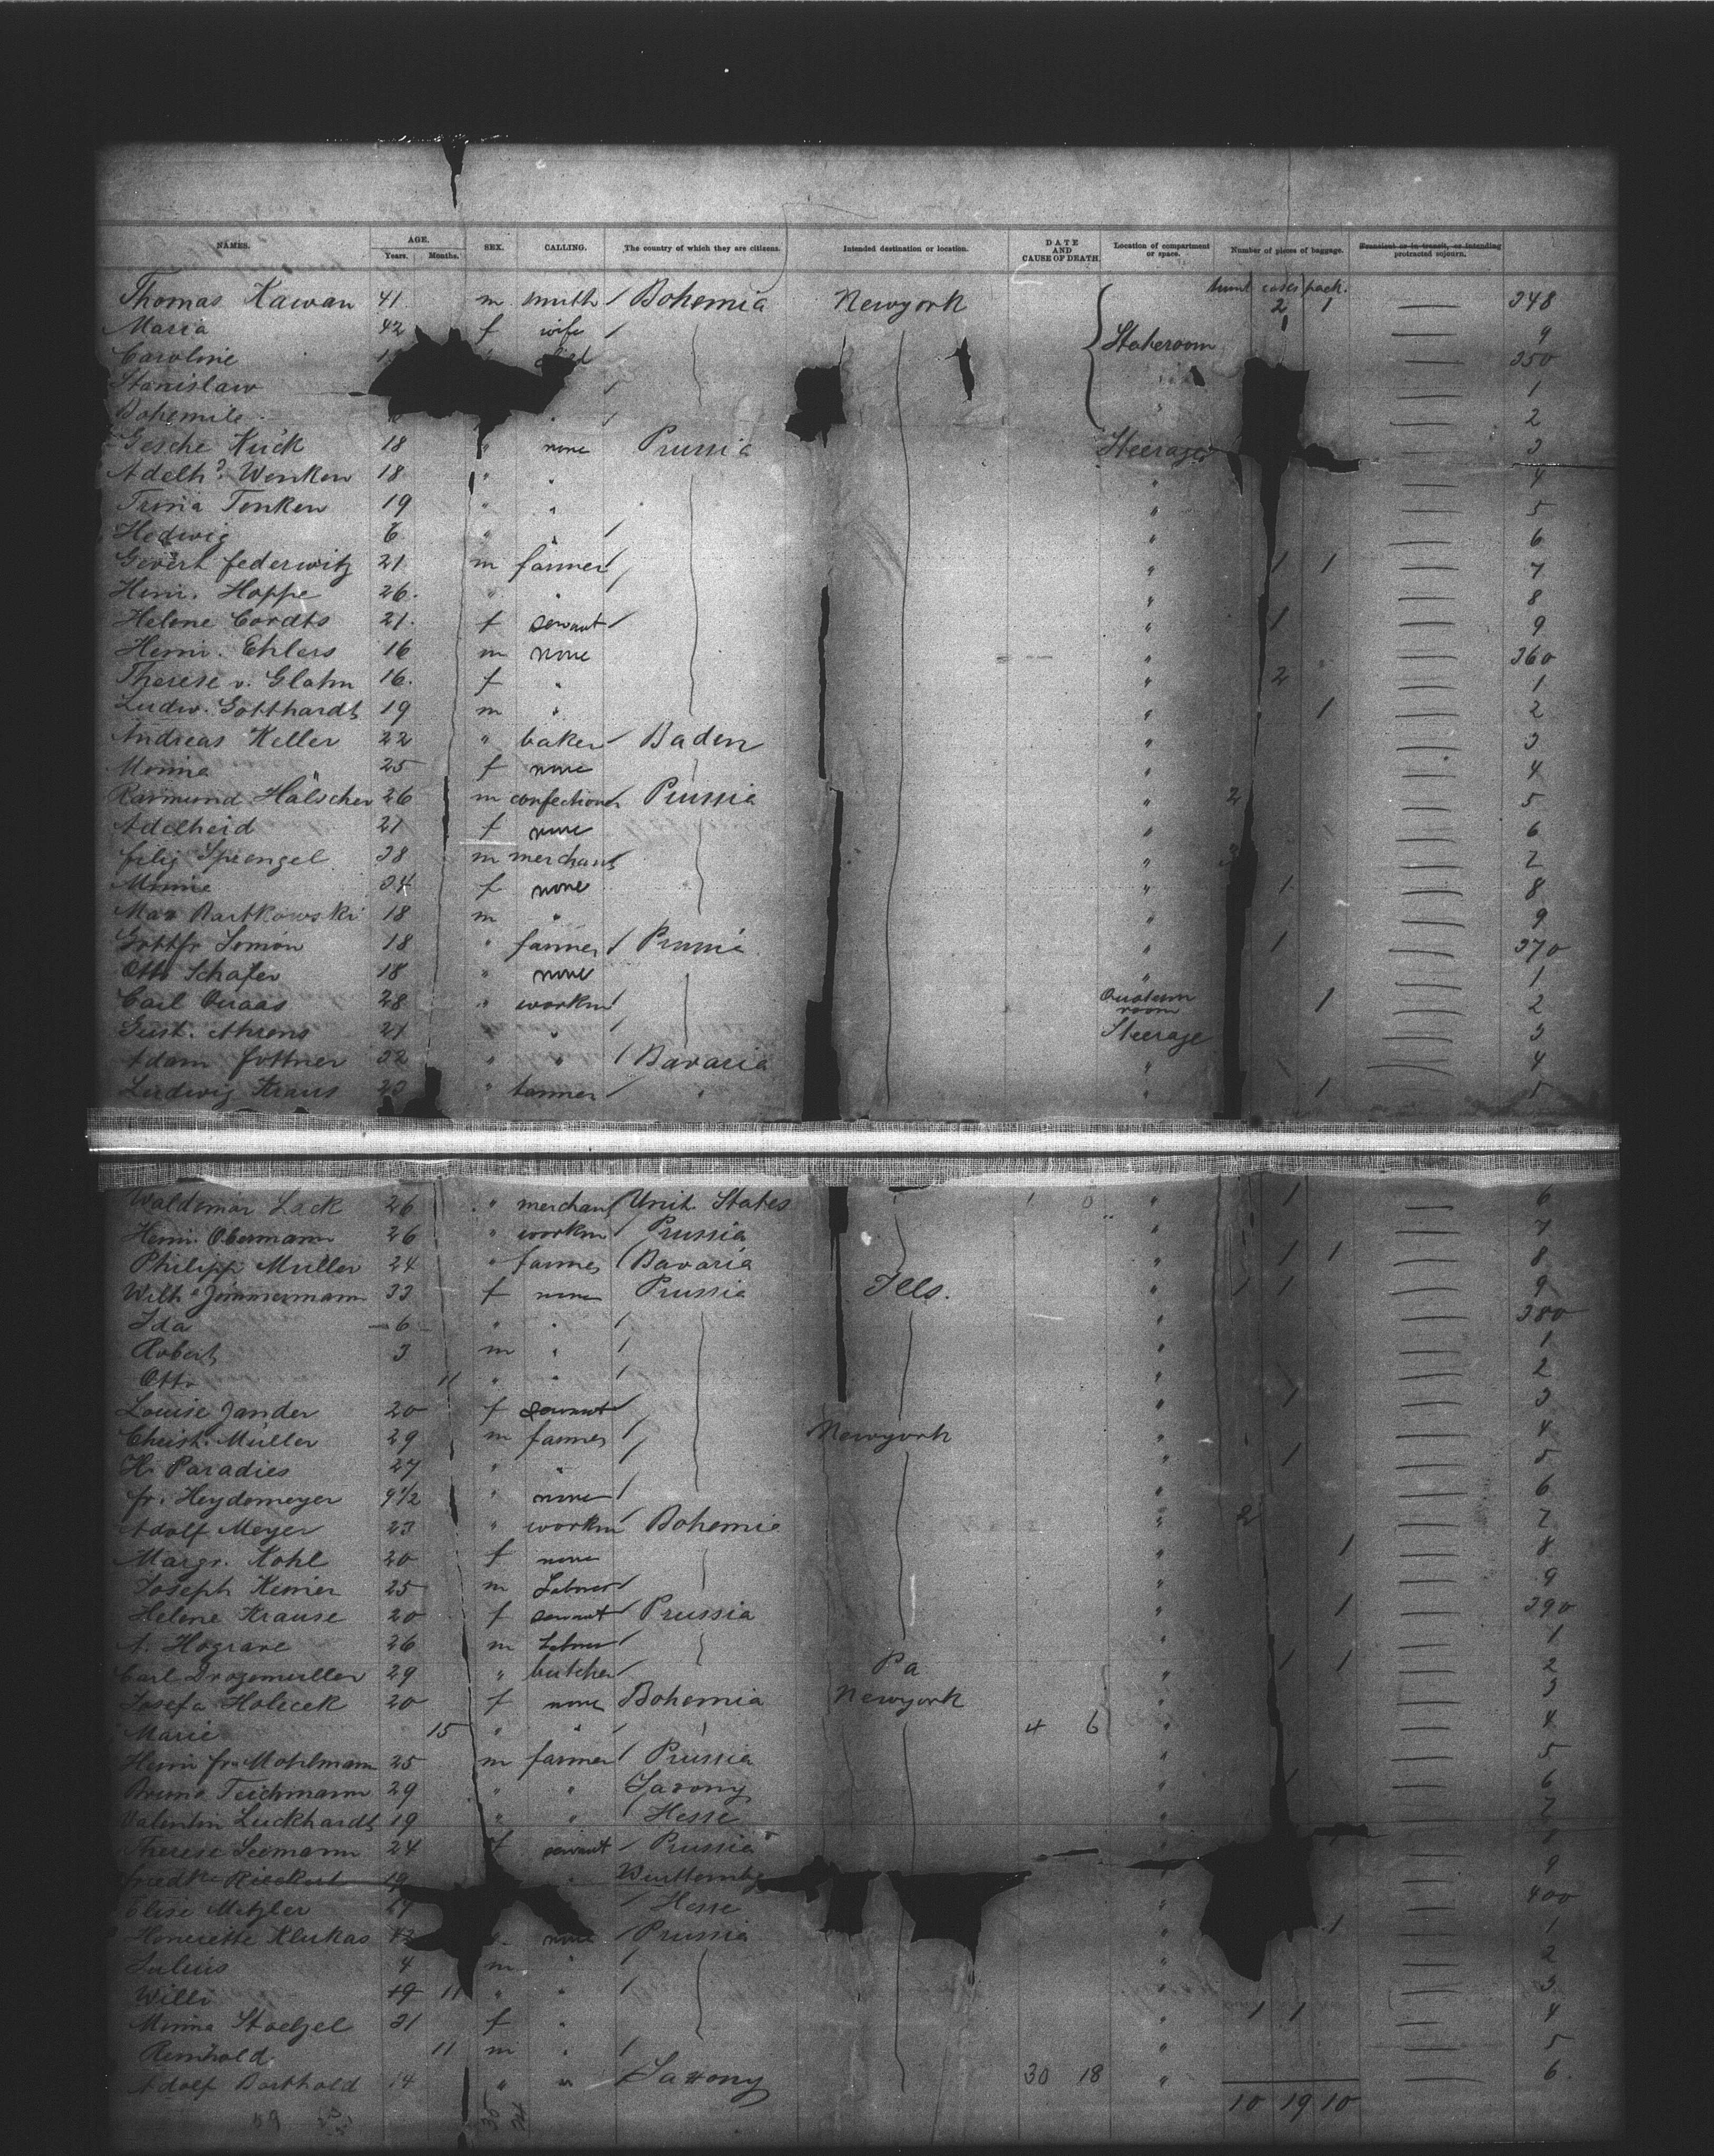 NAMES. AGE. Years. Months. SEX. CALLING. The country of which they are citizens. Intended destination or location. DATE AND CAUSE OF DEATH. Location of compartment or space. Number of pieces of baggage. Transient or in transit, or intending protracted sojourn.
cases pack.
Thomas Kawan 41 m smith / Bohemia Newyork 2 1 — 348
Maria 42 f wife / Stateroom 1 — 9
Caroline — 350
Stanislaw / — 1
Bohemile / — 2
Gesche Kück 18 " none Prussia Steerage — 3
Adelh? Wenken 18 " " " — 4
Trina Tenken 19 " " " — 5
Hedwig 6 " " / " — 6
Gevert Federwitz 21 m farmer / " 1 1 — 7
Heinr. Hoppe 26. " " / " — 8
Helene Cordts 21. f servant / " 1 — 9
Heinr. Ehlers 16 m none " — 360
Therese v. Glahn 16. f " " 2 — 1
Ludw. Gotthardt 19 m " " 1 — 2
Andreas Keller 22 " baker / Baden " — 3
Minna 25 f none " — 4
Raimund Hälscher 26 m confectioner Prussia " 2 — 5
Adelheid 21 f none " — 6
Felix Sprengel 38 m merchant / " — 7
Minnie 34 f none " 1 — 8
Max Bartkowski 18 m " " — 9
Gottfr Simon 18 " farmer / Prussia " 1 — 370
Otto Schafer 18 " none " — 1
Carl Quaas 28 " workm / room 1 — 2
Gust. Ahrens 21 " " / Steerage — 3
Adam Fottner 32 " " / Bavaria " — 4
Ludwig Kraus " tanner / " " 1 — 5
Waldemar Lack 26 " merchant / Unit. States " 1 — 6
Heinr. Obermann 26 " workm / Prussia " — 7
Philipp Muller 24 " farmer / Bavaria " 1 1 — 8
Wilh.a Zimmermann 33 f none Prussia Ills. " 1 1 — 9
Ida 6 " " / " — 380
Robert 3 m " / " — 1
Otto 11 " " / " — 2
Louise Zander 20 f servant / " 1 — 3
Christ. Müller 29 m farmer / Newyork " — 4
H. Paradies 27 " " / " 1 — 5
Fr. Heydemeyer 9 1/2 " none / " — 6
Adolf Meyer 23 " workm / Bohemia " 2 — 7
Margr. Kohl 20 f none " 1 — 8
Joseph Kemer 25 m Labourer / " — 9
Helene Krause 20 f servant / Prussia " 1 — 390
A. Hograve 26 m Labour / " — 1
Carl Drogemuller 29 " butcher / Pa " 1 1 — 2
Josefa Holecek 20 f none Bohemia Newyork " — 3
Marie 15 " " / 4 6 " — 4
Heinr Fr. Mohlmann 25 m farmer / Prussia " — 5
Bruno Teichmann 29 " " Saxony " — 6
Valentin Luckhardt 19 " " / Hesse " — 7
Therese Seemann 24 f servant / Prussia — 8
Friedke Rieckert 19 " Wurttembg " — 9
Elise Metzler / Hesse " — 400
Henriette Klukas none / Prussia " 1 — 1
Julius 4 m " / " — 2
Willi 11 " " / " — 3
Minna Stoetzel 31 f " " 1 1 — 4
Reinhold 11 m " / " — 5
Adolf Barthold 14 " " Saxony 30 18 " — 6.
10 19 10